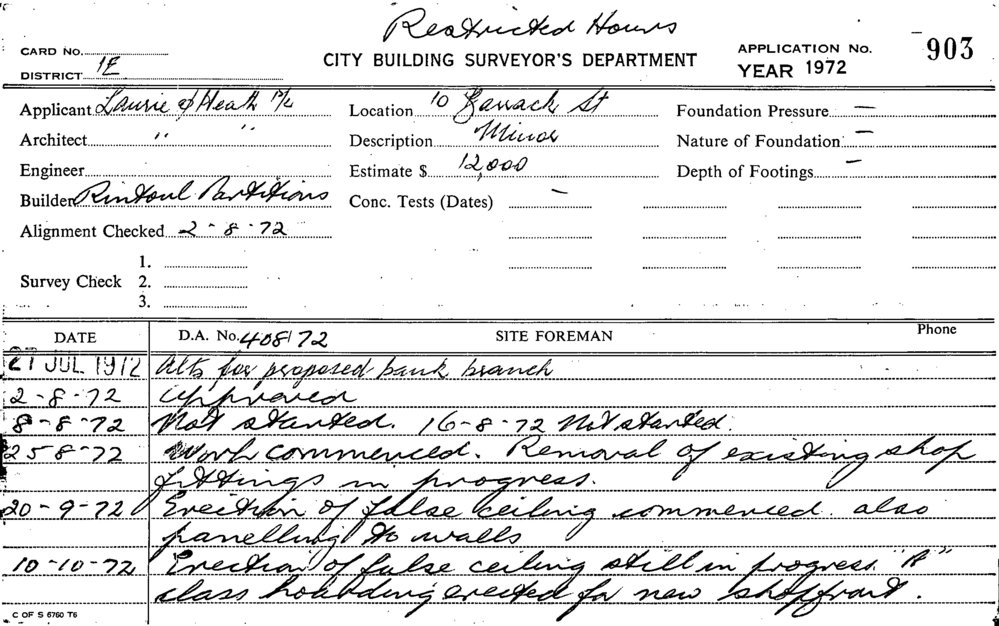 Restricted Hours
CARD No.
DISTRICT 1E
CITY BUILDING SURVEYOR'S DEPARTMENT
APPLICATION No. 903
YEAR 1972
Applicant Laurie & Heath P/L Location 10 Barrack St Foundation Pressure —
Architect " " Description Minor Nature of Foundation —
Engineer Estimate $ 12,000 Depth of Footings —
Builder Rintoul Partitions Conc. Tests (Dates) —
Alignment Checked 2-8-72
1.
Survey Check 2.
3.
DATE D.A. No. 408/72 SITE FOREMAN Phone
27 JUL 1972 Alts for proposed bank branch
2-8-72 Approved
8-8-72 Not started. 16-8-72 Not started.
25-8-72 Work commenced. Removal of existing shop
fittings in progress.
20-9-72 Erection of false ceiling commenced. also
panelling to walls
10-10-72 Erection of false ceiling still in progress. "A"
class hoarding erected for new shopfront.
C OF S 6760 T6